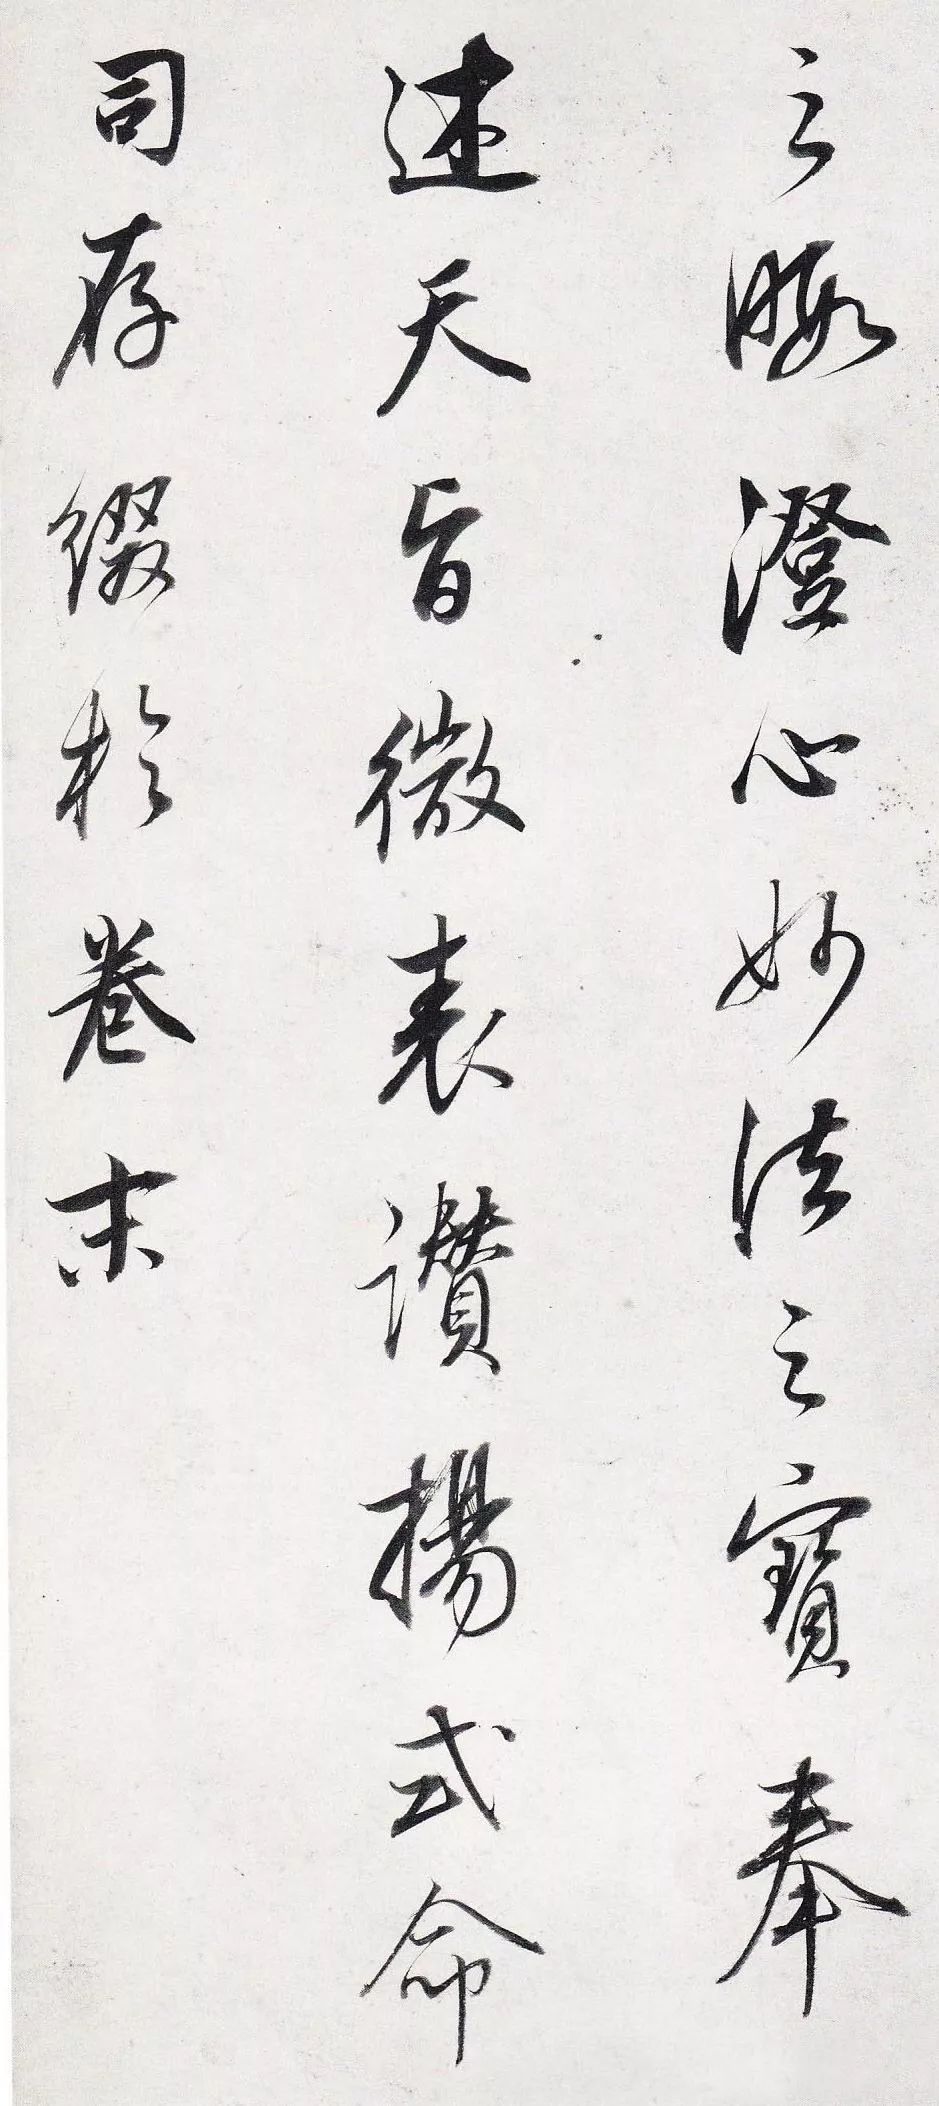 之暇澄心妙法之寶奉
述天旨微表讚揚式命
司存綴於卷末